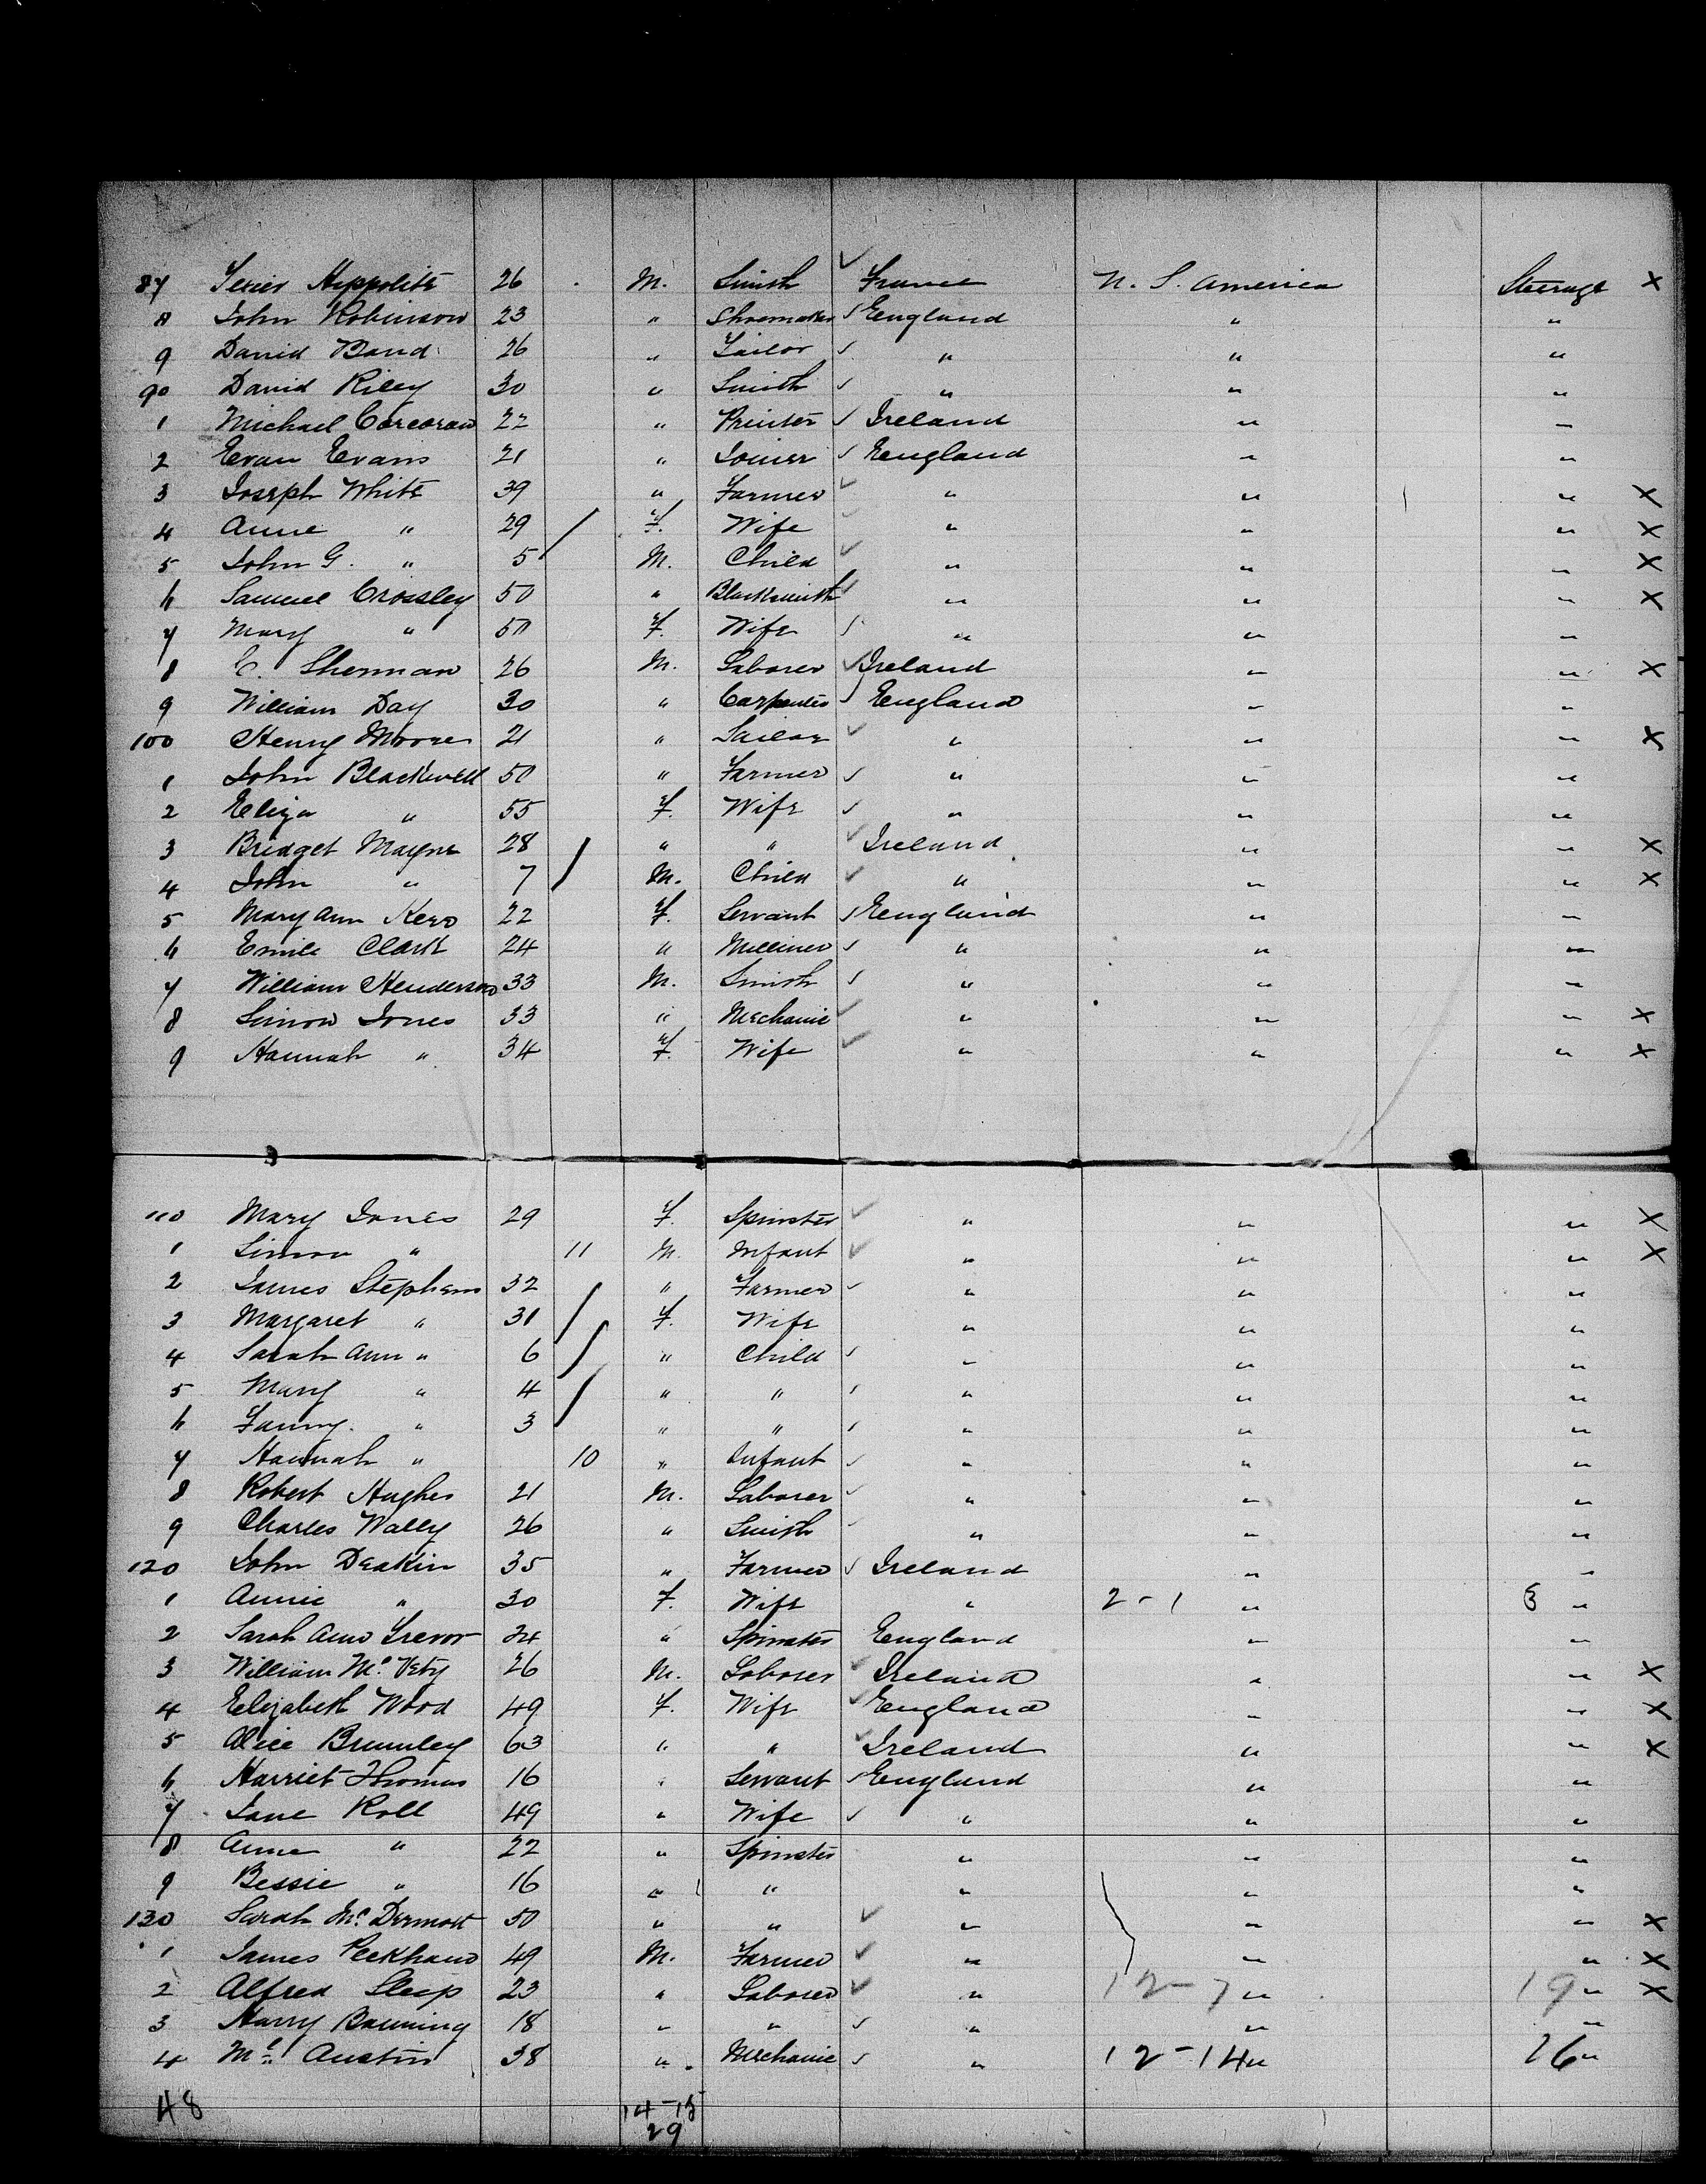 87 Texier Hippolite 26 M. Smith ✓ France U. S. America Steerage X
8 John Robinson 23 " Shoemaker ✓ England " "
9 David Band 26 " Tailor ✓ " " "
90 David Riley 30 " Smith ✓ " " "
1 Michael Corcoran 22 " Printer ✓ Ireland " "
2 Evan Evans 21 " Joiner ✓ England " "
3 Joseph White 39 " Farmer ✓ " " " X
4 Anne " 29 / F. Wife ✓ " " " X
5 John G. " 5 M. Child ✓ " " " X
6 Samuel Crossley 50 " Blacksmith ✓ " " " X
7 Mary " 50 F. Wife ✓ " " "
8 C. Sherman 26 M. Laborer ✓ Ireland " " X
9 William Day 30 " Carpenter ✓ England " "
100 Henry Moore 21 " Sailor ✓ " " " X
1 John Blackwell 50 " Farmer ✓ " " "
2 Eliza " 55 F. Wife ✓ " " "
3 Bridget Mayne 28 / " " ✓ Ireland " " X
4 John " 7 M. Child ✓ " " " X
5 Mary Ann Kerr 22 F. Servant ✓ England " "
6 Emile Clark 24 " Milliner ✓ " " "
7 William Henderson 33 M. Smith ✓ " " "
8 Simon Jones 33 " Mechanic ✓ " " " X
9 Hannah " 34 F. Wife ✓ " " " X
110 Mary Jones 29 F. Spinster ✓ " " " X
1 Simon " 11 M. Infant ✓ " " " X
2 James Stephens 32 " Farmer ✓ " " "
3 Margaret " 31 / F. Wife " " "
4 Sarah Ann " 6 / " Child ✓ " " "
5 Mary " 4 / " " ✓ " " "
6 Fanny. " 3 " " ✓ " " "
7 Hannah " 10 " Infant ✓ " " "
8 Robert Hughes 21 M. Laborer ✓ " " "
9 Charles Wally 26 " Smith ✓ " " "
120 John Deakin 35 " Farmer ✓ Ireland " "
1 Annie " 30 F. Wife " 2-1 " 3 "
2 Sarah Ann Trevor 24 " Spinster England " "
3 William Mc Vety 26 M. Laborer ✓ Ireland " " X
4 Elizabeth Wood 49 F. Wife ✓ England " " X
5 Alice Brumley 63 " " ✓ Ireland " " X
6 Harriet Thomas 16 " Servant ✓ England " "
7 Jane Roll 49 " Wife ✓ " " "
8 Anna " 22 " Spinster " " "
9 Bessie " 16 " " " " "
130 Sarah Mc Dermott 50 " " ✓ " " " X
1 James Peckham 49 M. Farmer ✓ " " " X
2 Alfred Sleep 23 " Laborer ✓ " 12-7 " 19 " X
3 Harry Banning 18 " " ✓ " " "
4 Mr. Austin 38 " Mechanic ✓ " 12-14 " 26 "
48 14-15
29